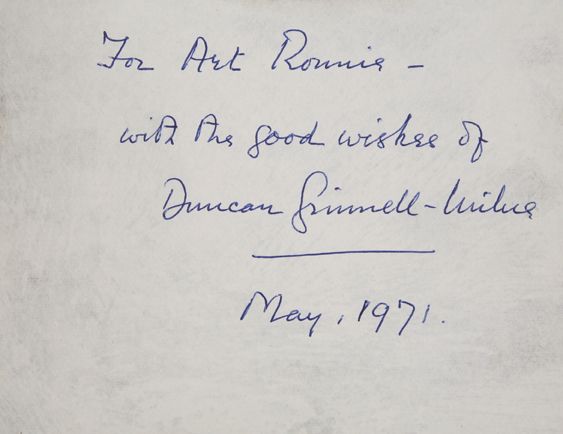 For Art Ronnie -
with the good wishes of
Duncan Grinnell-Milne
May, 1971.